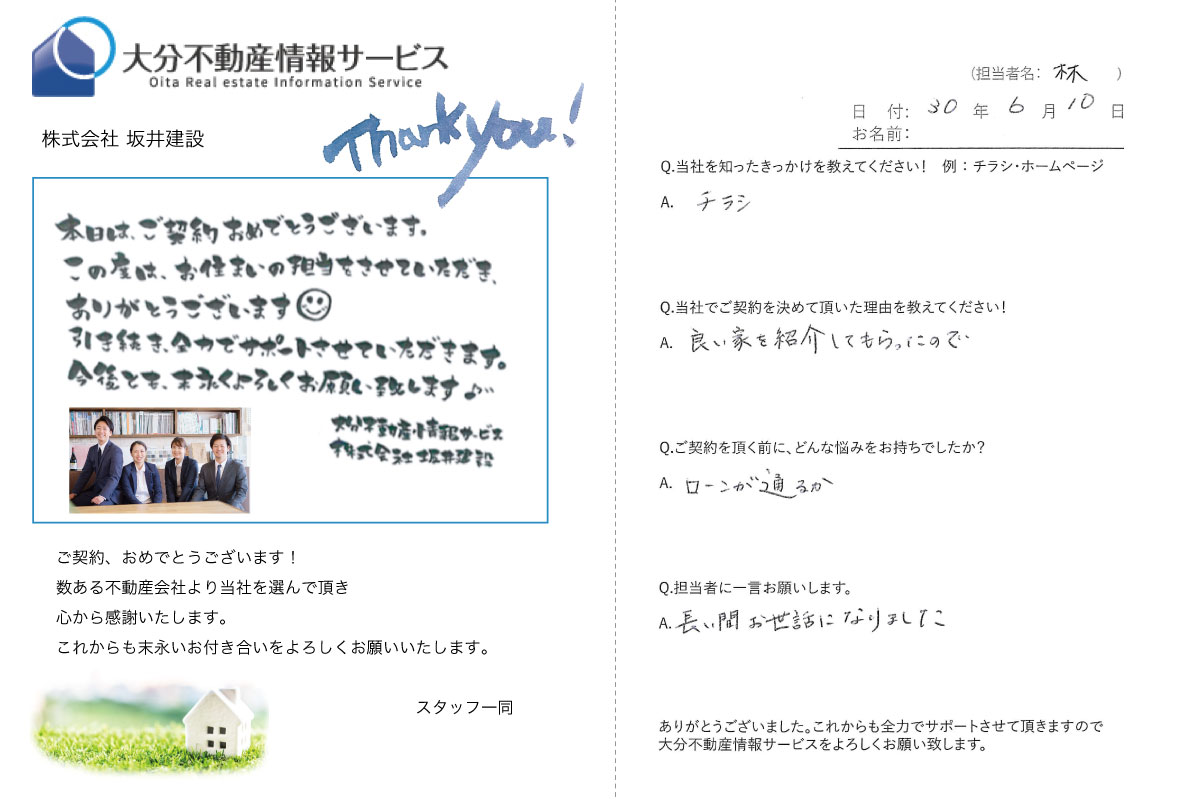 大分不動産情報サービス
Oita Real estate Information Service
株式会社 坂井建設
Thank you!
本日は、ご契約おめでとうございます。
この度は、お住まいの担当をさせていただき、
ありがとうございます
引き続き、全力でサポートさせていただきます。
今後とも、末永くよろしくお願い致します♪
大分不動産情報サービス
株式会社 坂井建設
ご契約、おめでとうございます！
数ある不動産会社より当社を選んで頂き
心から感謝いたします。
これからも末永いお付き合いをよろしくお願いいたします。
スタッフ一同
(担当者名: 林 )
日 付: 30 年 6 月 10 日
お名前:
Q.当社を知ったきっかけを教えてください! 例：チラシ・ホームページ
A. チラシ
Q.当社でご契約を決めて頂いた理由を教えてください!
A. 良い家を紹介してもらったので
Q.ご契約を頂く前に、どんな悩みをお持ちでしたか?
A. ローンが通るか
Q.担当者に一言お願いします。
A. 長い間お世話になりました
ありがとうございました。これからも全力でサポートさせて頂きますので
大分不動産情報サービスをよろしくお願い致します。